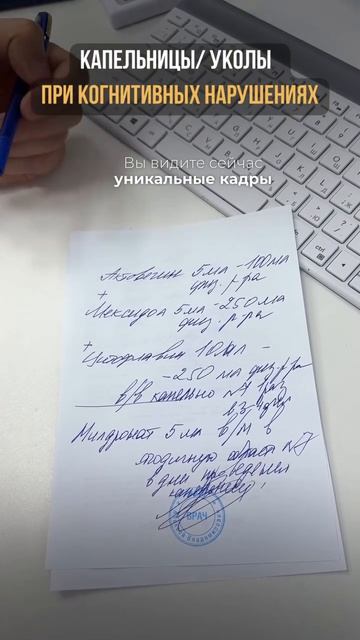 КАПЕЛЬНИЦЫ/ УКОЛЫ
ПРИ КОГНИТИВНЫХ НАРУШЕНИЯХ
Вы видите сейчас
уникальные кадры
Актовегин 5 мл - 100 мл
физ. р-ра
+
Мексидол 5 мл - 250 мл
физ. р-ра
+
Цитофлавин 10 мл -
- 250 мл физ. р-ра
в/в капельно №7 1 раз
в 3
Милдронат 5 мл в/м в
ягодичную область №7
в дни проведения
ВРАЧ